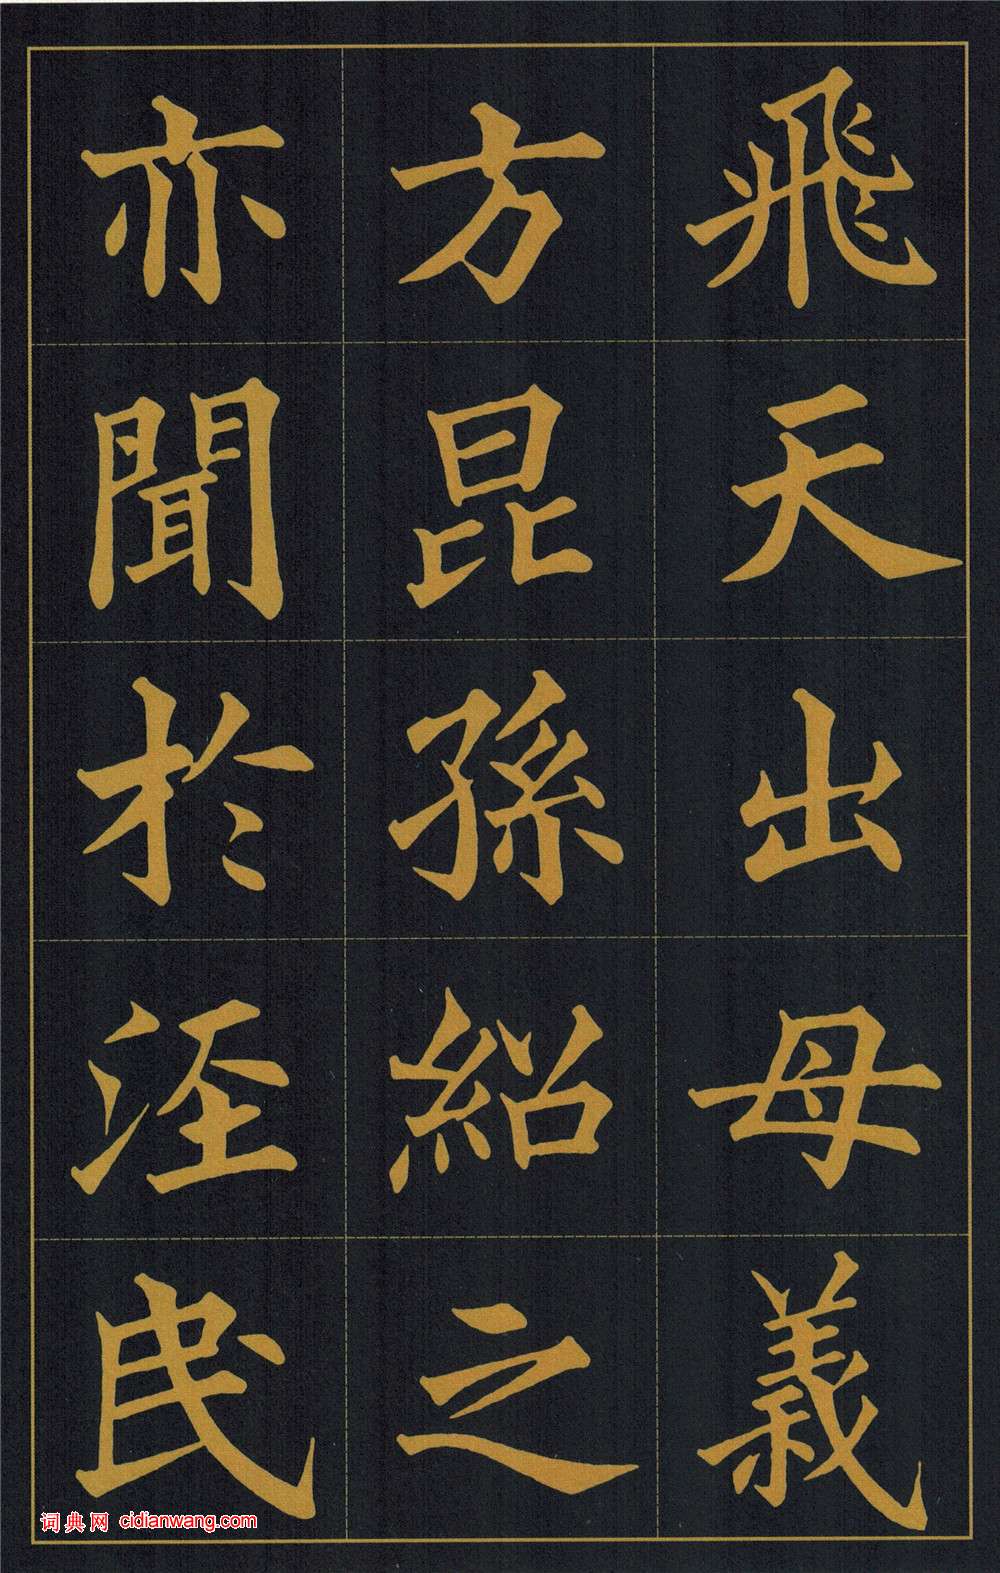 飛天出母義
方昆孫紹之
亦聞於淫民
词典网 cidianwang.com